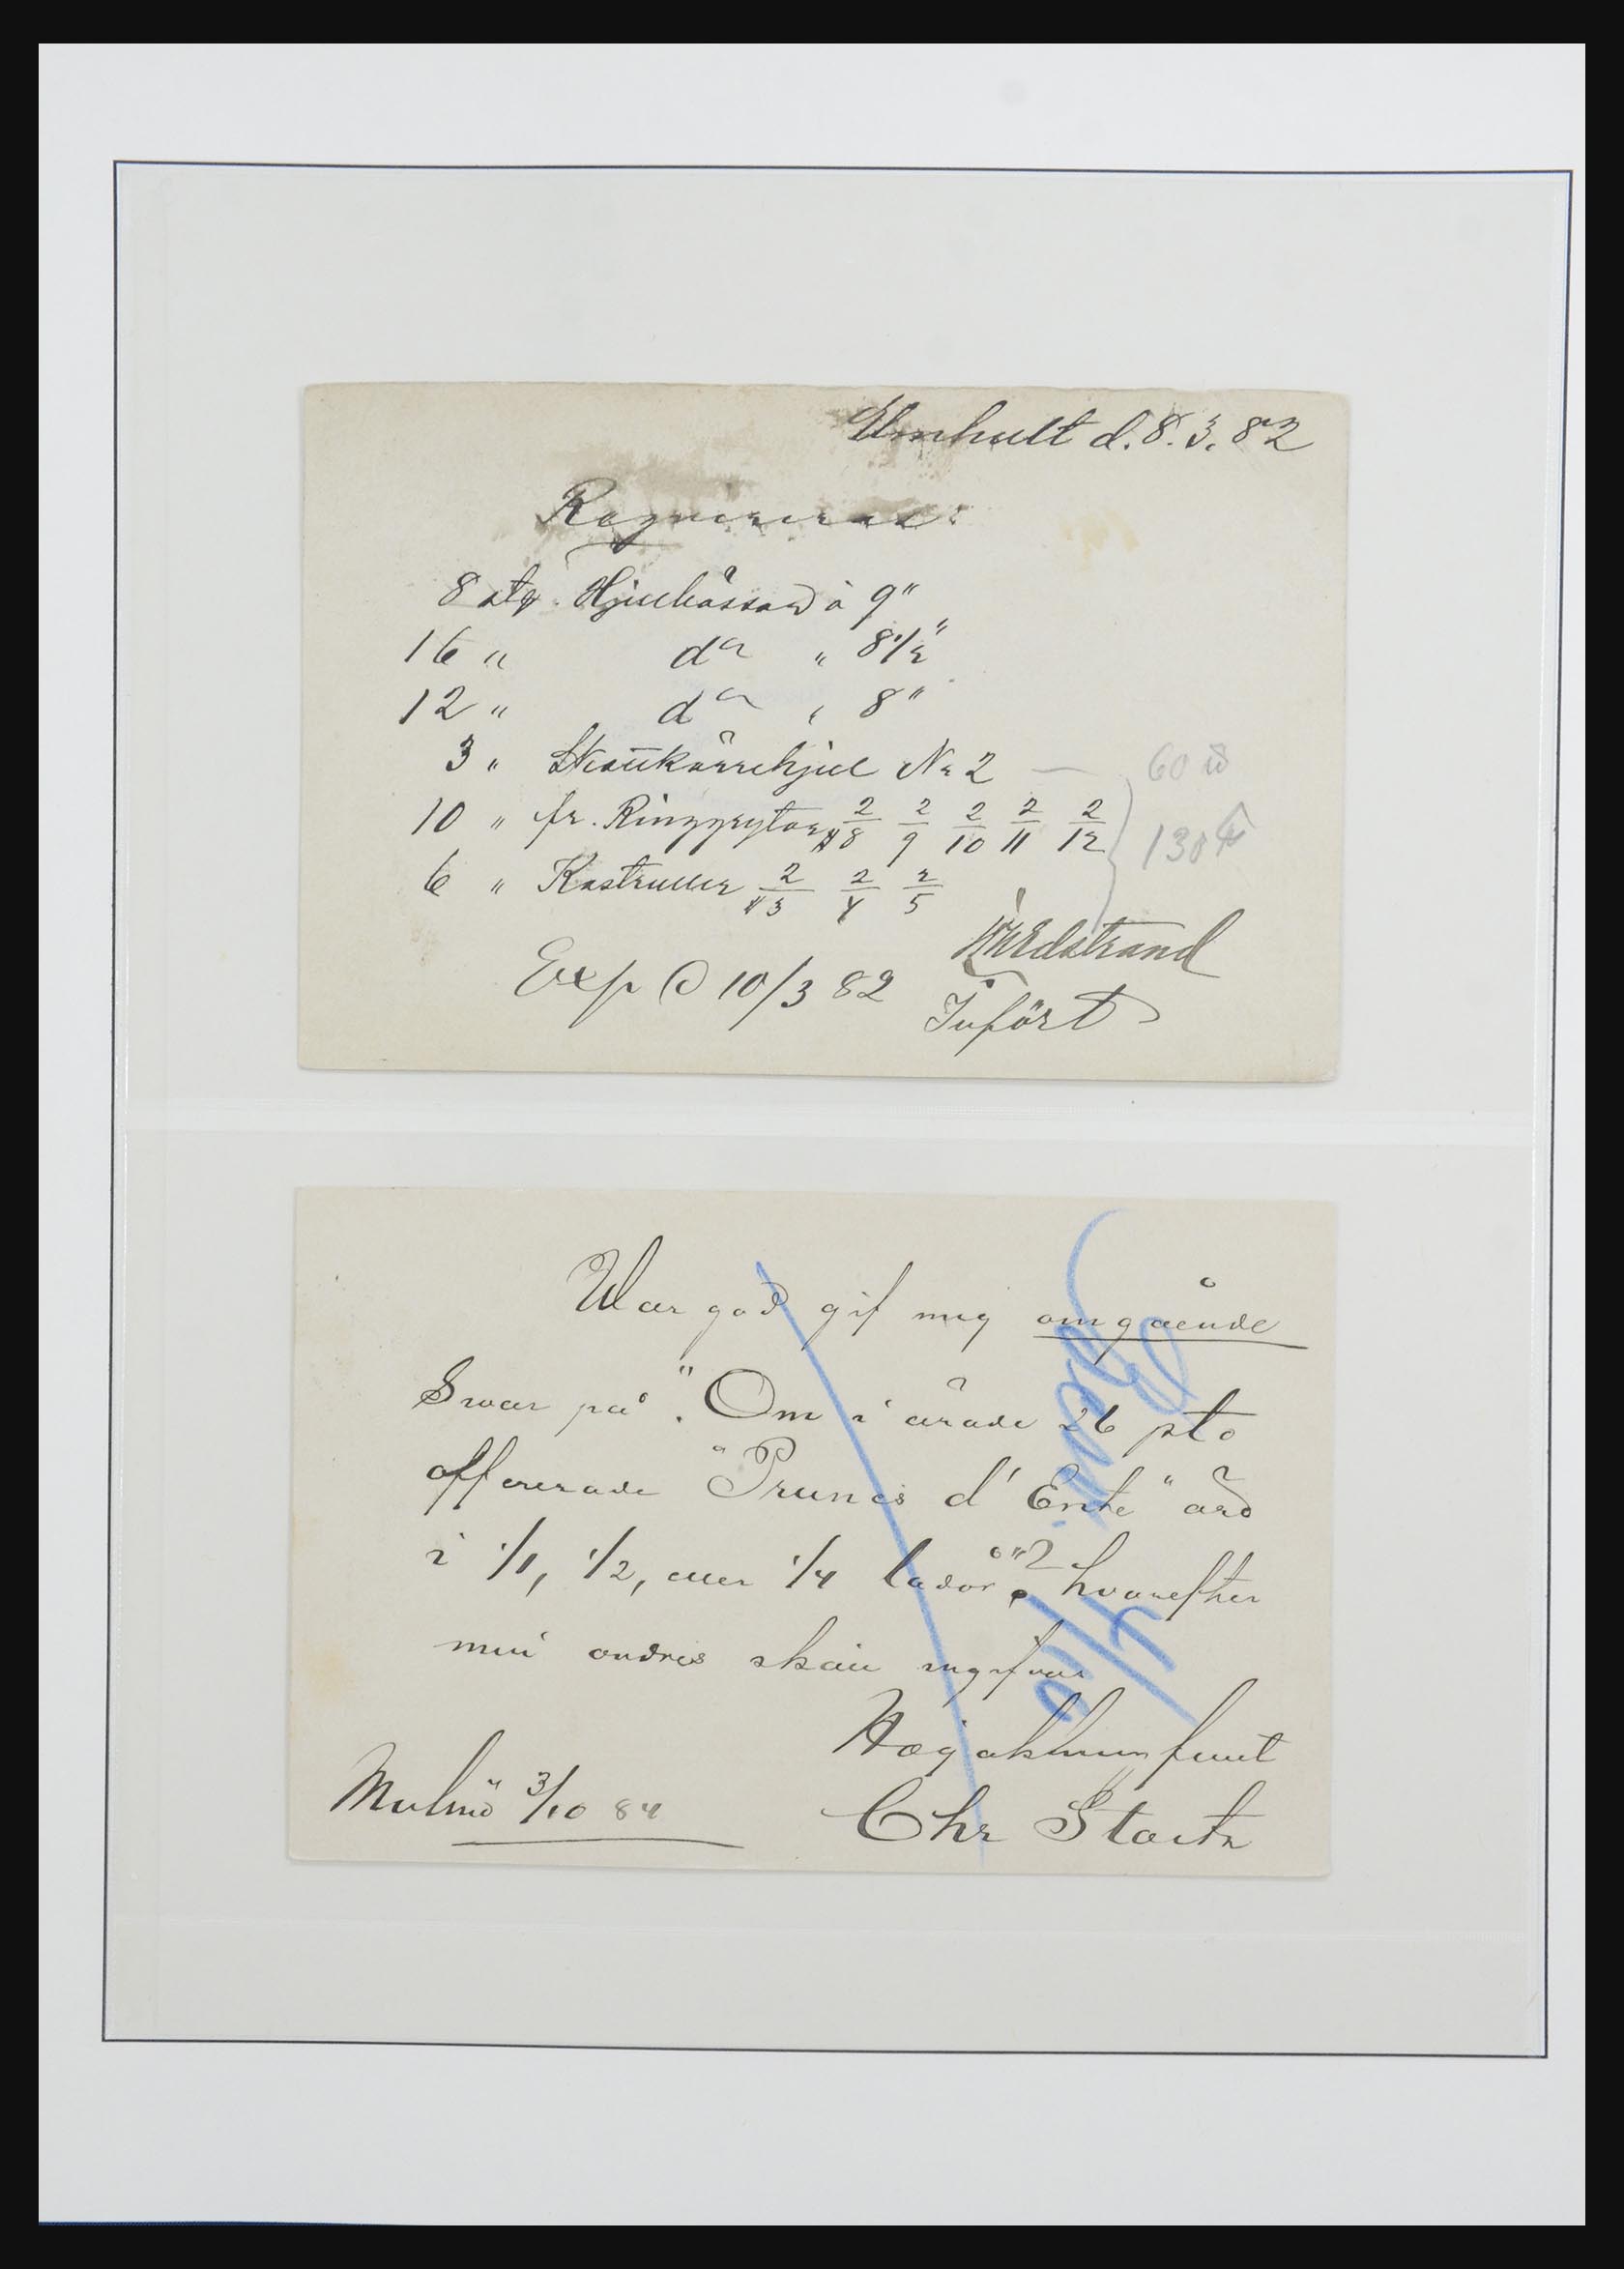 Elmhult d. 8. 3. 82
Requireras:
8 stq. Hjulbössor à 9"
16 " do " 8 1/2"
12 " do " 8"
3 " Skottkärrehjul No 2 — 60 ℔
10 " fr. Ringgrytor # 2/8 2/9 2/10 2/11 2/12 130 ℔
6 " Kastruller # 2/3 2/4 2/5
Edstrand
Exp 10/3 82
Infört
War god gif mig omgående
Swar på: "Om i ärade 26 pto
offererade "Prunes d'Ente" äro
i 1/1, 1/2, eller 1/4 lådor?" hvarefter
min ordres skall ingifvas
Högaktningsfullt
Malmö 3/10 84
Chr
Besv.
4/10